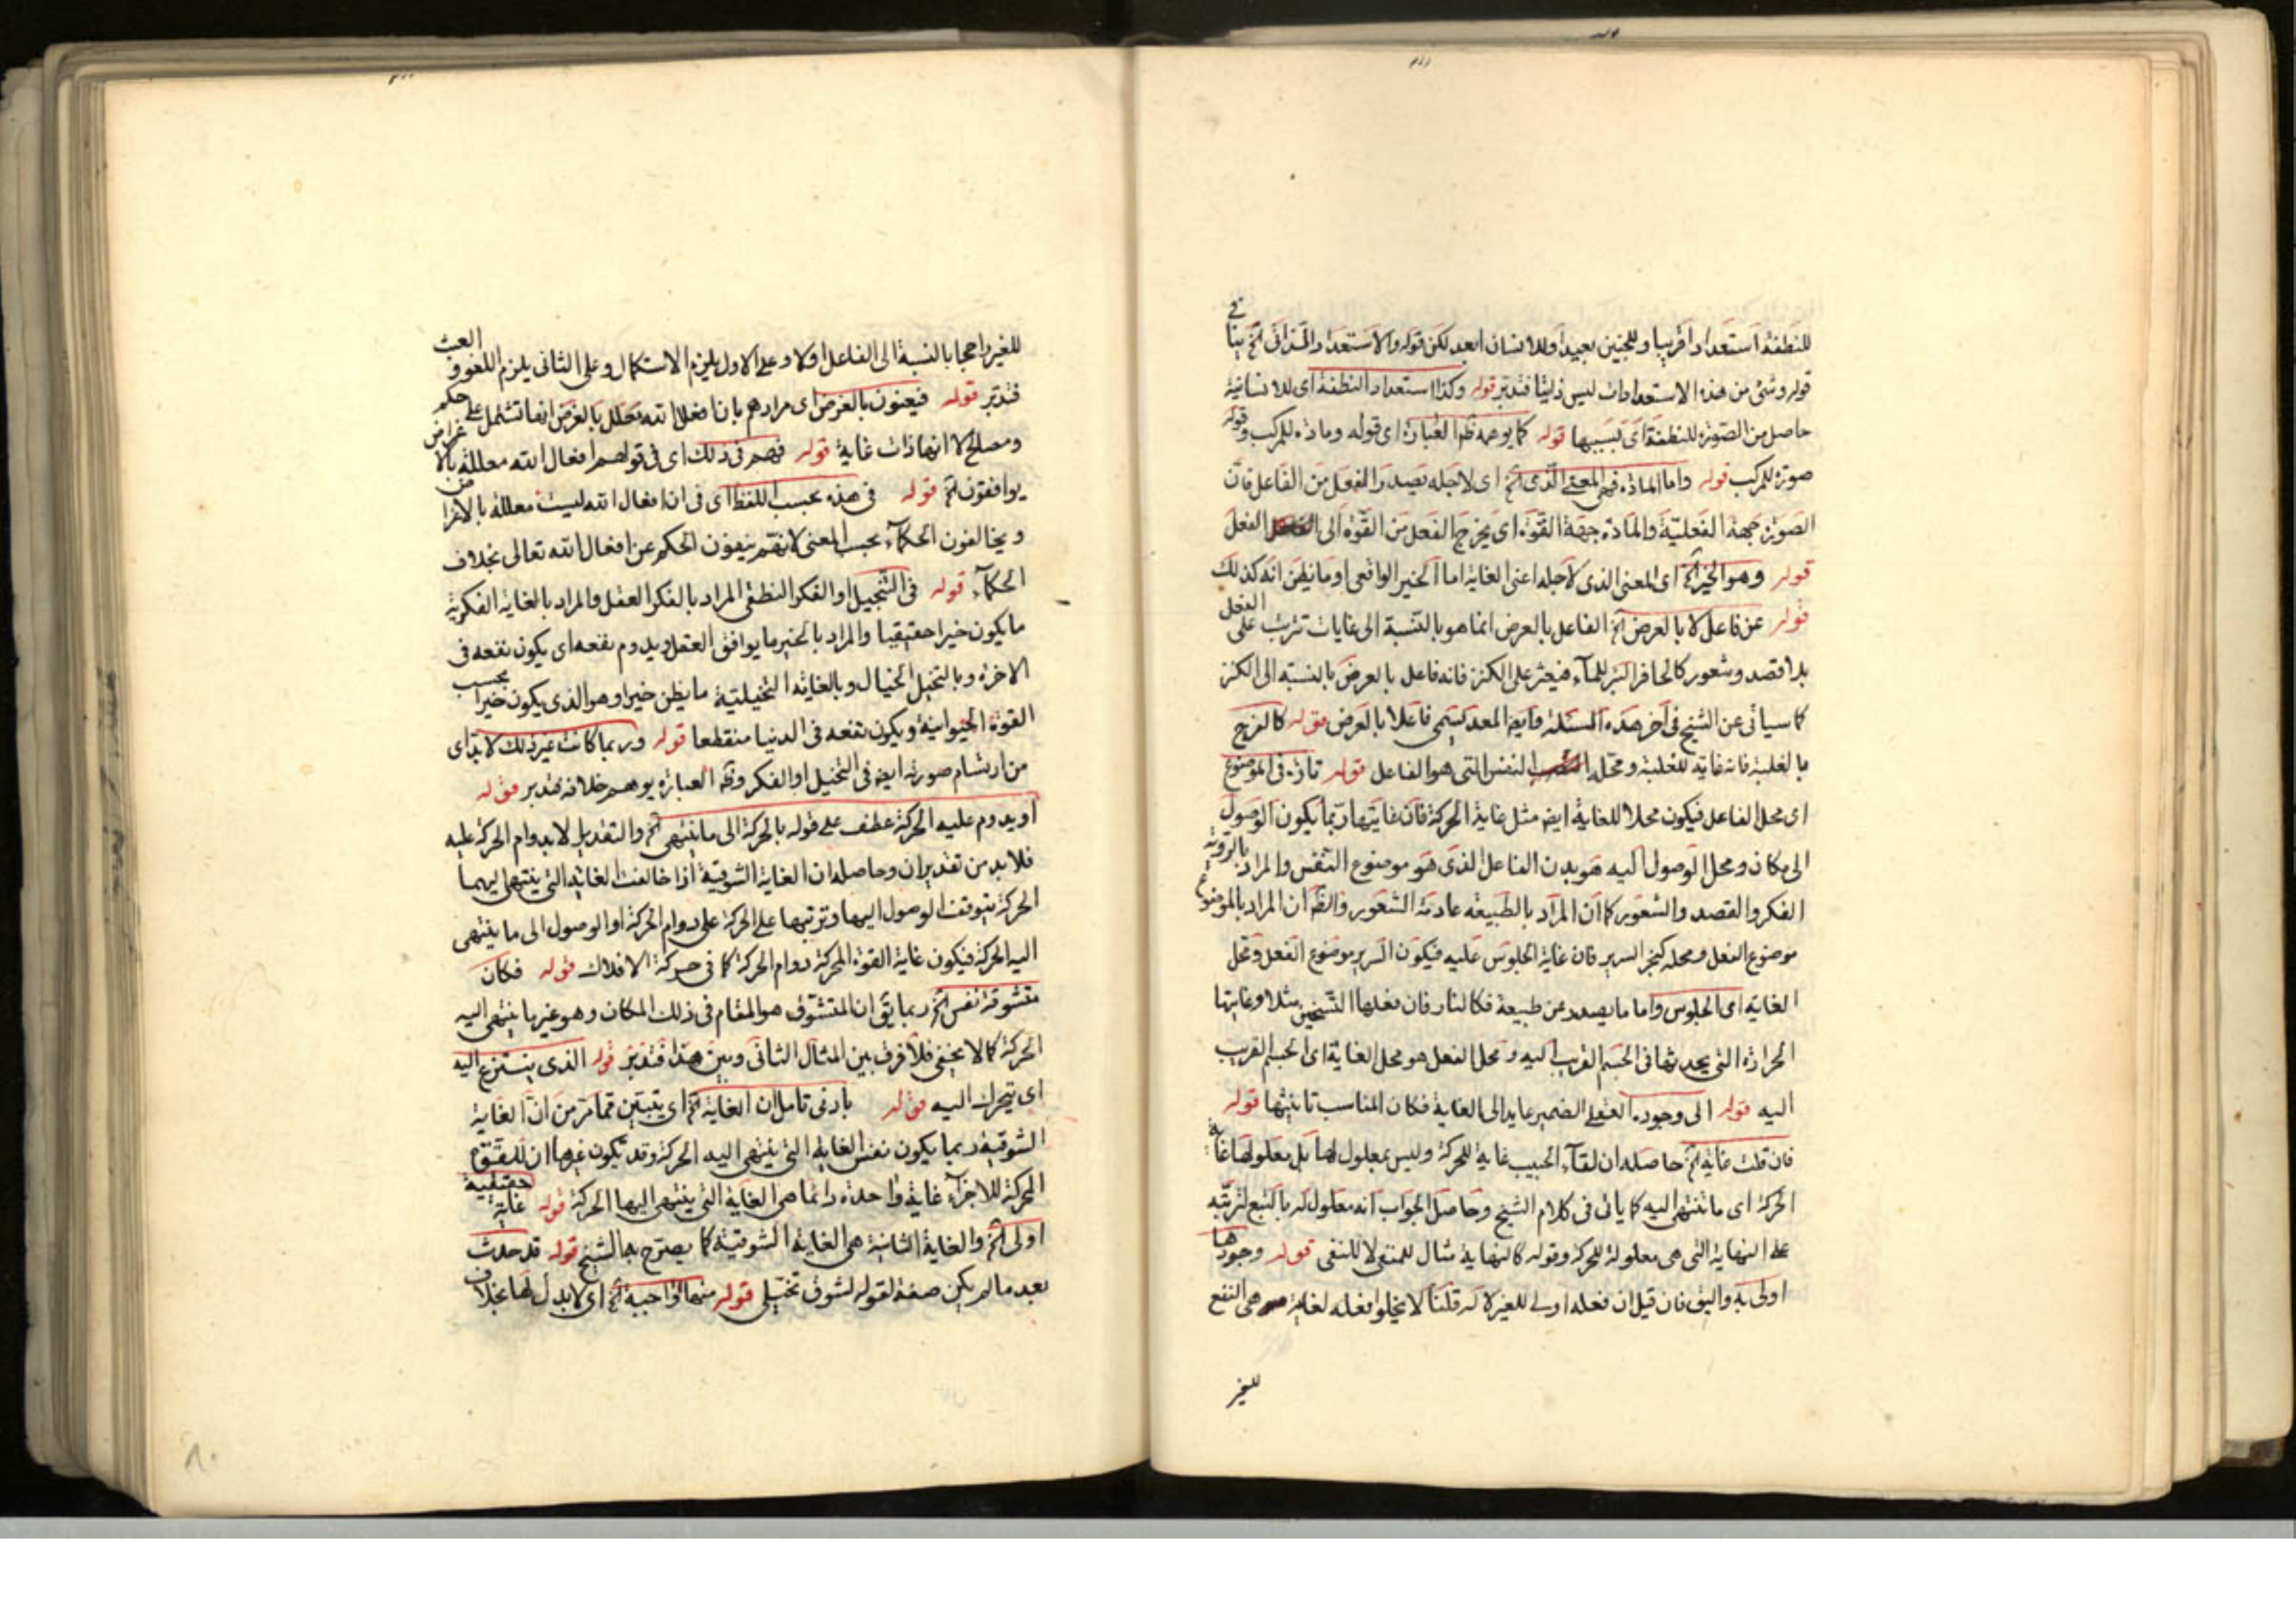 للنطفة استعدادا قريبا وللجنين بعيدا وللانسان ابعد لكن قوله والاستعداد المذاتى الخ ينافى
قوله وشئ من هذه الاستعدادات ليس ذاتيا فتدبر قوله وكذا استعداد النطفة اى للانسانية
حاصل من الصورة للنطفة اى بسببها قوله كما يوهمه ظ العبارة اى قوله ومادة للمركب وقوله
صورة للمركب قوله واما المادة فهى المعنى الذى الخ اى لاجله يصدر الفعل من الفاعل فان
الصورة جهة الفعلية والمادة جهة القوة اى يخرج الفعل من القوة الى الفعل
قوله وهو الخير الخ اى المعنى الذى لاجله اعنى الغاية اما الخير الواقعى او ما يظن انه كذلك
قوله عن فاعل لا بالعرض الخ الفاعل بالعرض انما هو بالنسبة الى غايات ترتب على الفعل
بلا قصد وشعور كالحافر البئر للماء فيعثر على الكنز فانه فاعل بالعرض بالنسبة الى الكنز
كما سيأتى عن الشيخ فى آخر هذه المسئلة وايضا المعد ليسمى فاعلا بالعرض قوله كالفرح
بالغلبة فانه غاية للغلبة ومحله النفس التى هو الفاعل قوله تارة فى الموضوع
اى محل الفاعل فيكون محلا للغاية ايضا مثل غاية الحركة فان غايتها ربما يكون الوصول
الى مكان ومحل الوصول اليه هو بدن الفاعل الذى هو موضوع النفس والمراد بالروية
الفكر والقصد والشعور كما ان المراد بالطبيعة عادمة الشعور والظ ان المراد بالموضوع
موضوع الفعل ومحله كنجر السرير فان غاية الجلوس عليه فيكون السرير موضوع الفعل ومحل
الغاية اى الجلوس واما ما يصدر عن طبيعة فكالنار فان فعلها التسخين مثلا وغايتها
الحرارة التى يحدثها فى الجسم القريب اليه ومحل الفعل هو محل الغاية اى الجسم القريب
اليه قوله الى وجوده العقلى الضمير عايد الى الغاية فكان المناسب تانيثها قوله
فان قلت غاية الخ حاصله ان لقاء الحبيب غاية للحركة وليس بمعلول لها بل معلولها غاية
الحركة اى ما تنتهى اليه كما ياتى فى كلام الشيخ وحاصل الجواب انه معلول له بالتبع لترتبه
على النهاية التى هى معلولة للحركة وقوله كالنهاية مثال للمنفى لا للنفى قوله وجودها
اولى به واليق فان قيل ان فعله اولى للغير لا له قلنا لا يخلو فعله لغاية هى النفع
للغير
للغير راجحا بالنسبة الى الفاعل اولا وعلى الاول يلزم الاستكمال وعلى الثانى يلزم اللغو والعبث
فتدبر قوله فيعنون بالغرض اى مرادهم بان افعال الله تعلل بالغرض انها تشتمل على حكم
ومصالح لا انها ذات غاية قوله فهم فى ذلك اى فى قولهم افعال الله معللة بالاغراض
يوافقون الخ قوله فى هذه بحسب اللفظ اى فى ان افعال الله ليست معللة بالاغراض
ويخالفون الحكماء بحسب المعنى لانهم ينفون الحكم عن افعال الله تعالى بخلاف
الحكماء قوله فى التخييل او الفكر النطقى المراد بالفكر العقل والمراد بالغاية الفكرية
ما يكون خيرا حقيقيا والمراد بالخير ما يوافق العقل ويدوم نفعه اى يكون نفعه فى
الاخرة وبالتخيل الخيال وبالغاية التخيلية ما يظن خيرا وهو الذى يكون خيرا بحسب
القوة الحيوانية ويكون نفعه فى الدنيا منقطعا قوله وربما كانت غير ذلك لابد اى
من ارتسام صورته ايضا فى التخيل او الفكر وظ العبارة يوهم خلافه فتدبر قوله
او يدوم عليه الحركة عطف على قوله بالحركة الى ما ينتهى الخ والتقدير لا بدوام الحركة عليه
فلابد من تقدير ان وحاصله ان الغاية الشوقية اذا خالفت الغاية التى ينتهى اليهما
الحركة يتوقف الوصول اليها وترتبها على الحركة على دوام الحركة او الوصول الى ما ينتهى
اليه الحركة فيكون غاية القوة المحركة دوام الحركة كما فى حركة الافلاك قوله فكان
متشوقة نفس الخ ربما يق ان المتشوق هو المقام فى ذلك المكان وهو غير ما ينتهى اليه
الحركة كما لا يخفى فلا فرق بين المثال الثانى وبين هذا فتدبر قوله الذى ينتزع اليه
اى يتحرك اليه قوله بادنى تامل ان الغاية الخ اى يتبين مما مر من ان الغاية
الشوقية ربما يكون نفس الغاية التى ينتهى اليه الحركة وقد تكون غيرها ان للقوة
المحركة للاجزاء غاية واحدة دائما هى الغاية التى ينتهى اليها الحركة قوله غاية حقيقية
اولى الخ والغاية الثانية هى الغاية الشوقية كما يصرح بها الشيخ قوله قد حدث
بعد ما لم يكن صفة لقوله لشوق تخيلى قوله منها واجبة الخ اى لا بدل لها بخلاف
٨٠